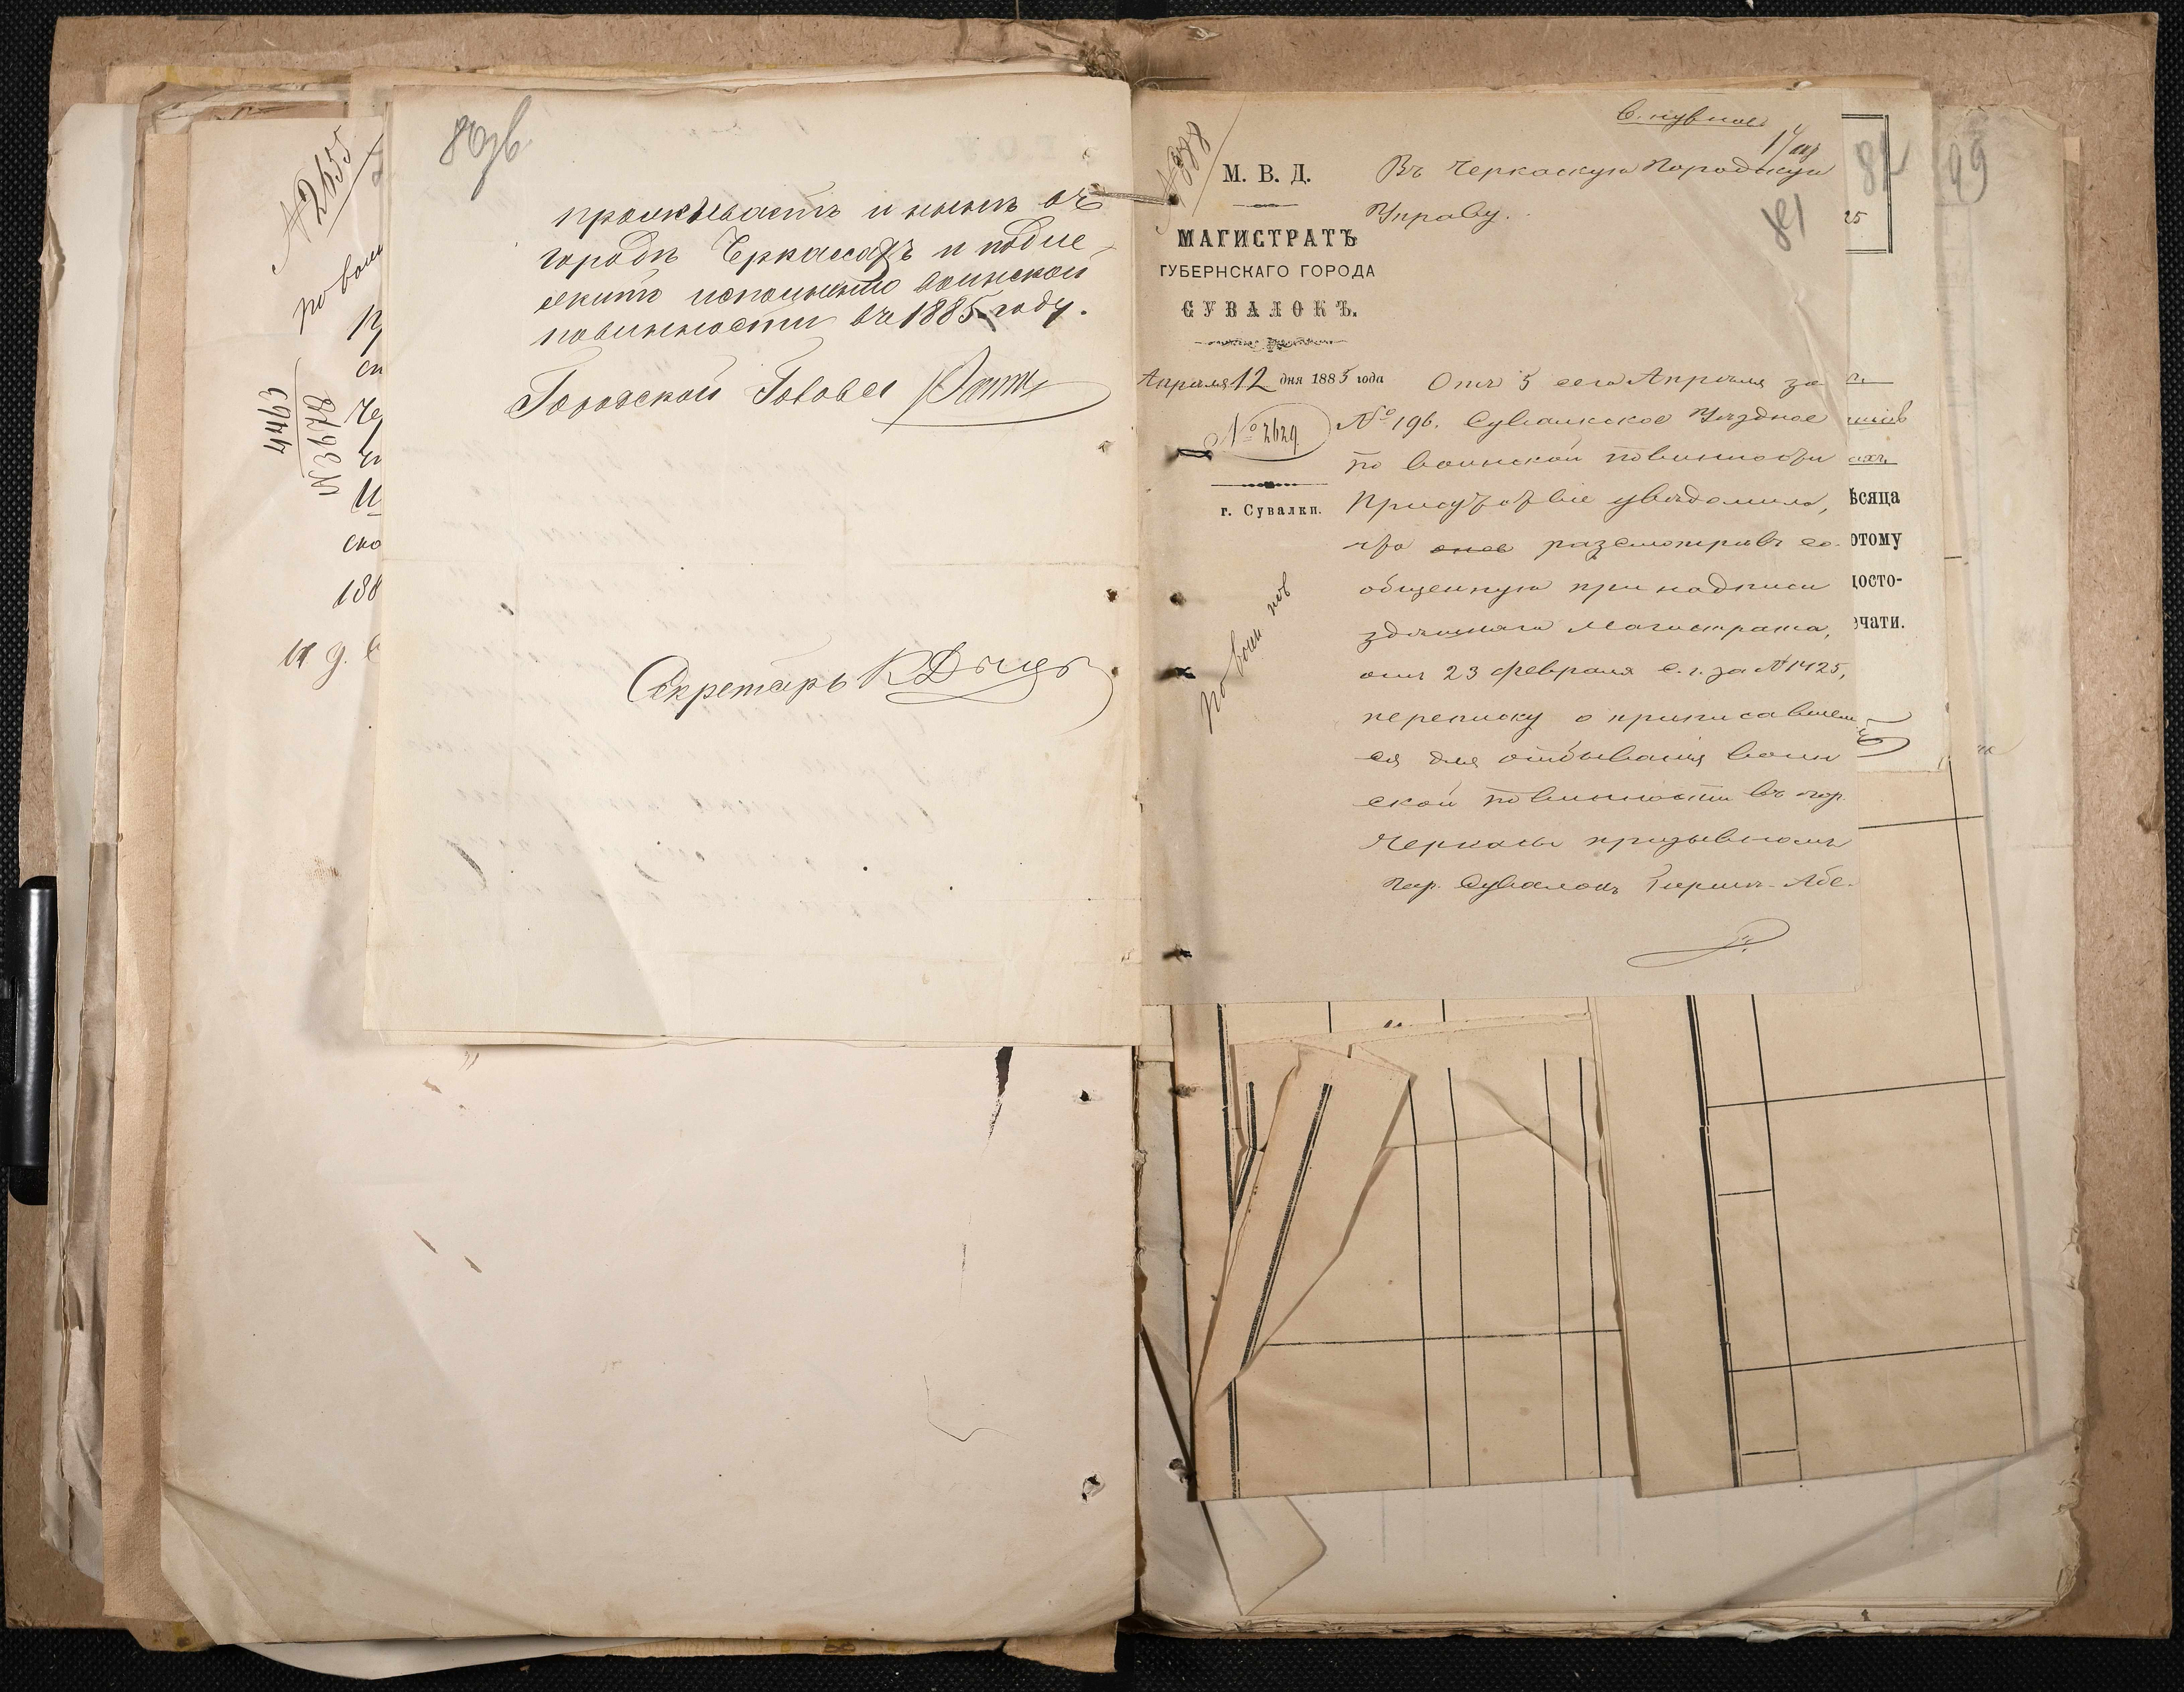 № 2655
по воин
188
и д.
80 зв
проживаетъ и нынѣ въ
городѣ Черкасахъ и подле-
житъ исполненію воинской
повинности въ 1885 году.
Городской Голова
Секретарь
М. В. Д.
МАГИСТРАТЪ
ГУБЕРНСКАГО ГОРОДА
СУВАЛОКЪ.
Апрѣля 12 дня 1885 года
№ 2629
г. Сувалки.
по воин пов
17/апр
81
Въ Черкаскую Городскую
Управу.
Отъ 5 сего Апрѣля за
№ 196. Сувалкское Уѣздное
по воинской повинности
Присутствіе увѣдомило,
что оное разсмотрѣвъ со-
общенную при надписи
здѣшняго Магистрата,
отъ 23 февраля с. г. за № 1425,
переписку о приписавшем
ся для отбыванія воин
ской повинности въ гор.
Черкасы призывномъ
гор. Сувалокъ Гиршъ-Абе-
82
99
25
ѣсяца
этому
досто-
ечати.